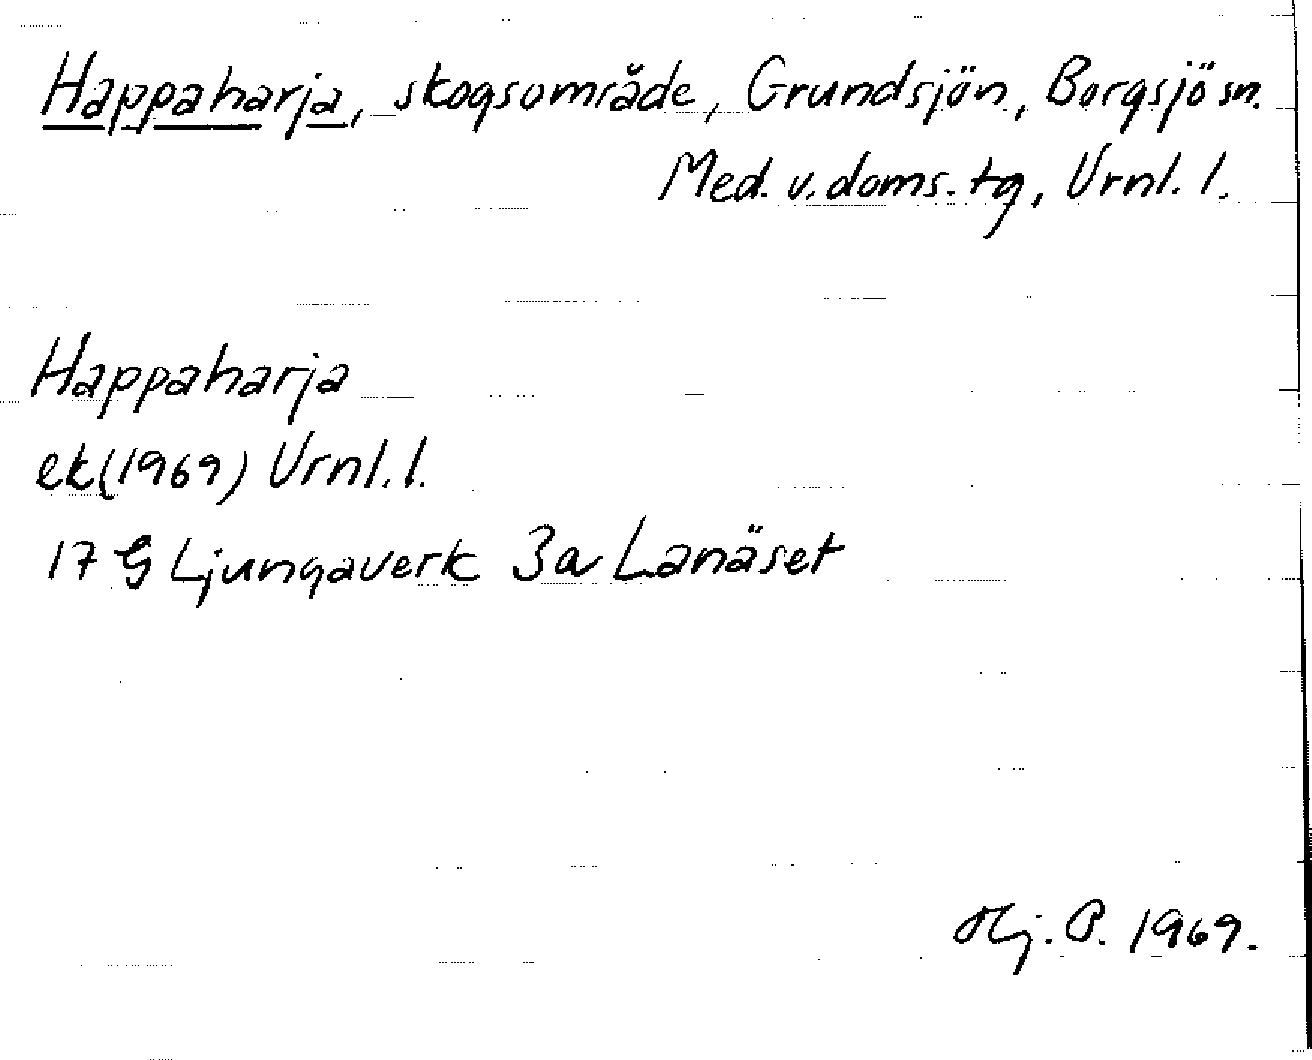 Happaharja, skogsområde, Grundsjön, Borgsjö sn.
Med. v. doms. tg, Vrnl. l.
Happaharja
ek (1969) Vrnl. l.
17 G Ljungaverk 3a Lanäset
Hj. P. 1969.